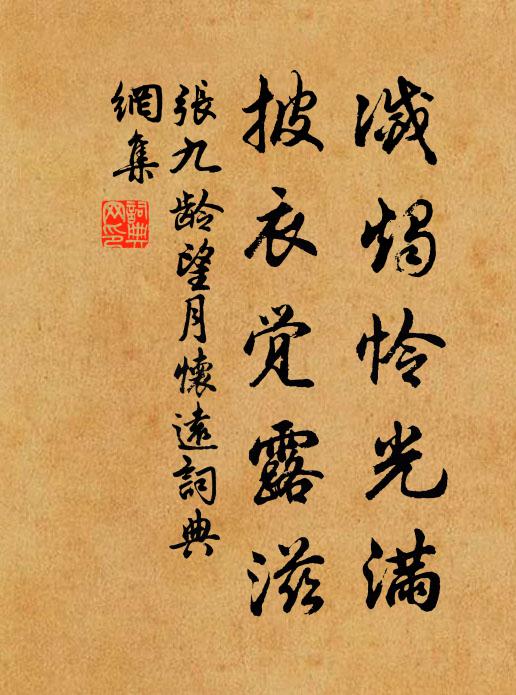 滅燭怜光滿
披衣覚露滋
張九龄望月懷遠詞典
網集
詞典
网印